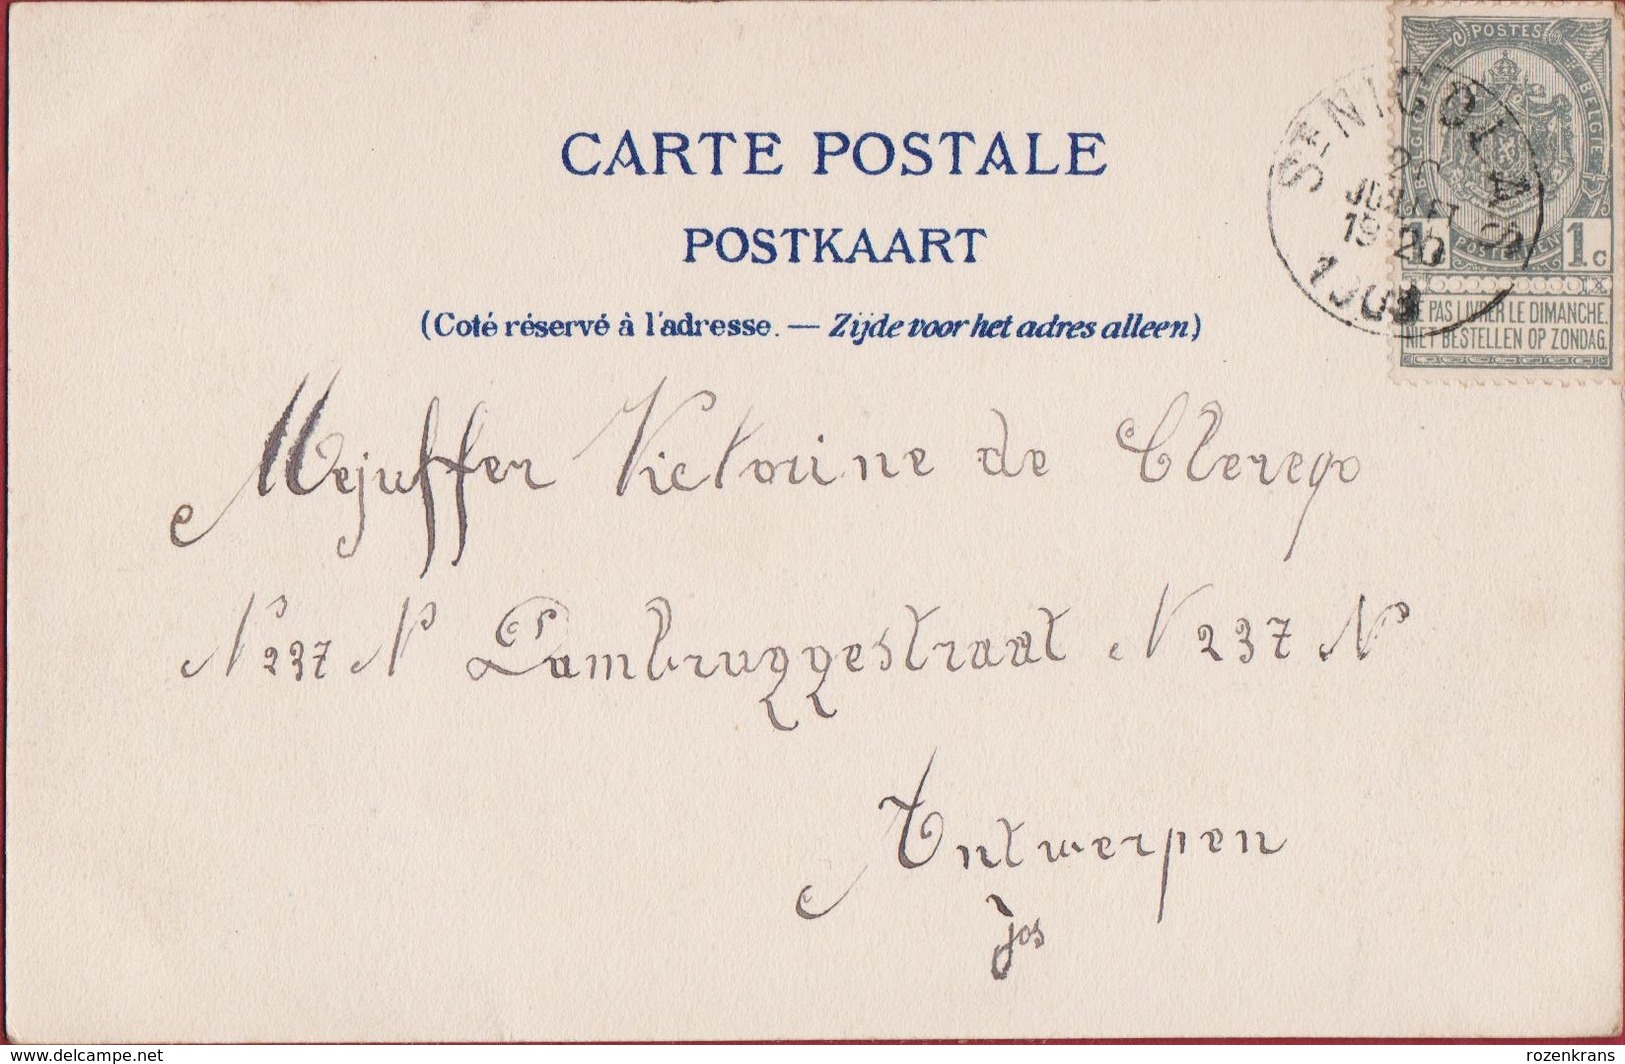 CARTE POSTALE
POSTKAART
(Coté réservé à l'adresse. — Zijde voor het adres alleen)
POSTES
BELGIQUE
BELGIË
POSTERIJEN
1c
NE PAS LIVRER LE DIMANCHE.
NIET BESTELLEN OP ZONDAG.
ST NICOLAS
20
JUILLET
19-20
Mejuffer Victorine de Clercq
N 237 N Lambruggestraat N 237 N
Antwerpen
Jos
www.delcampe.net
rozenkrans